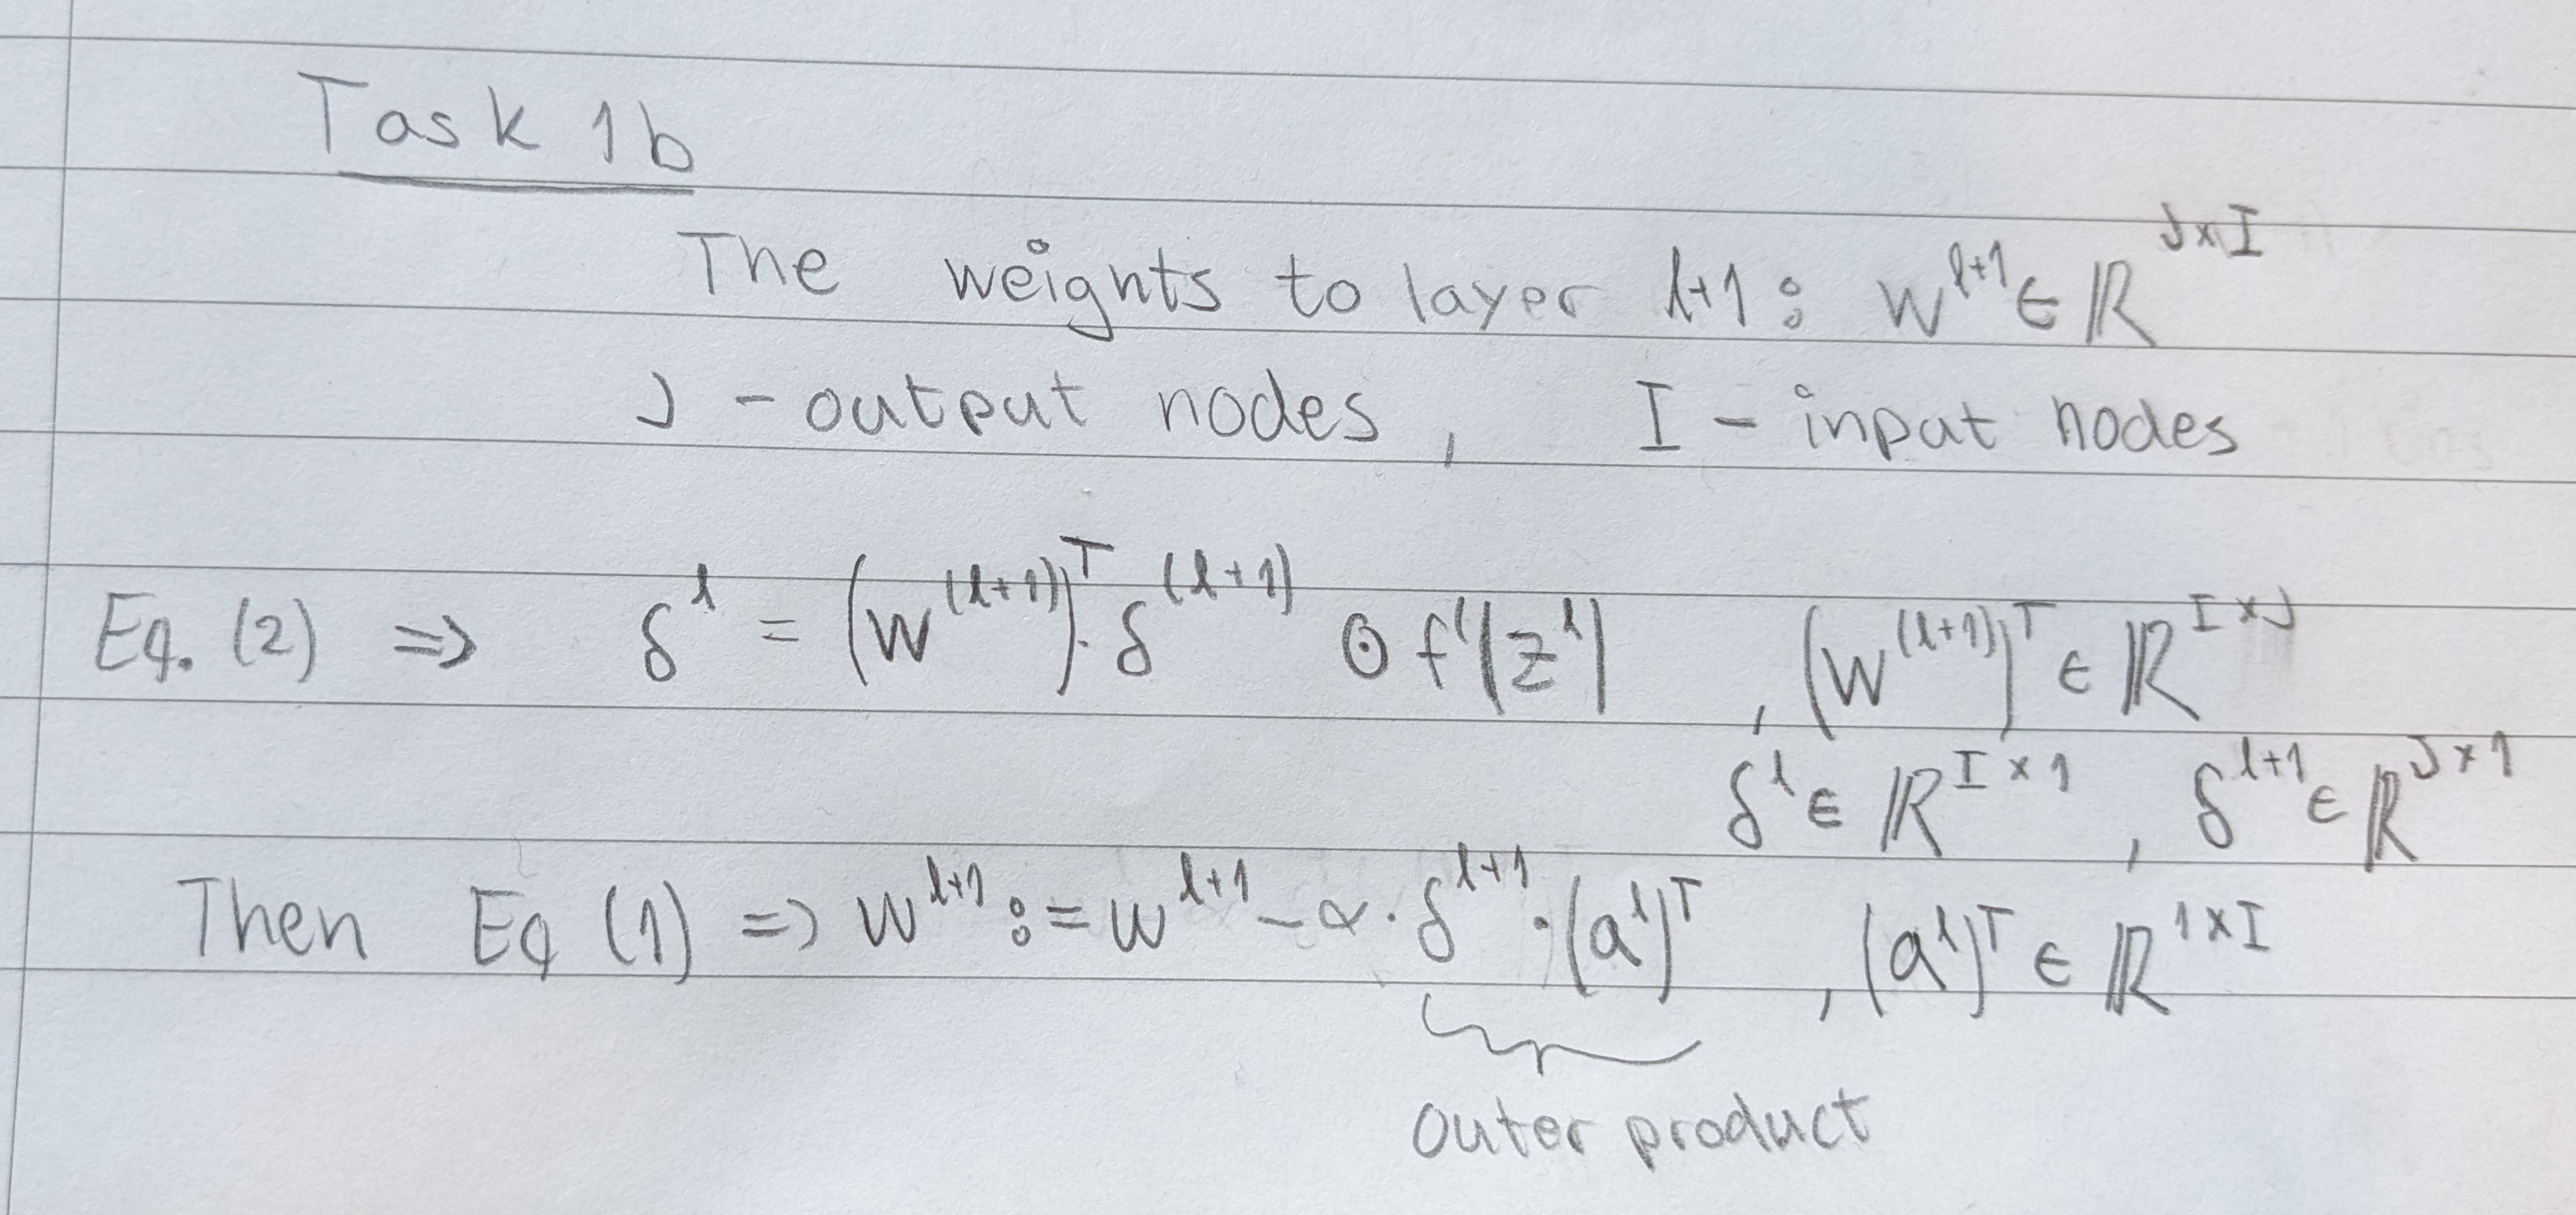 Task 1b
The weights to layer l+1: w^{l+1} ∈ ℝ^{J×I}
J - output nodes, I - input nodes
Eq. (2) => δ^l = (w^{(l+1)})^T · δ^{(l+1)} ⊙ f'(z^l) , (w^{(l+1)})^T ∈ ℝ^{I×J}
δ^l ∈ ℝ^{I×1} , δ^{l+1} ∈ ℝ^{J×1}
Then Eq (1) => w^{l+1} := w^{l+1} - α · δ^{l+1} · (a^l)^T , (a^l)^T ∈ ℝ^{1×I}
outer product